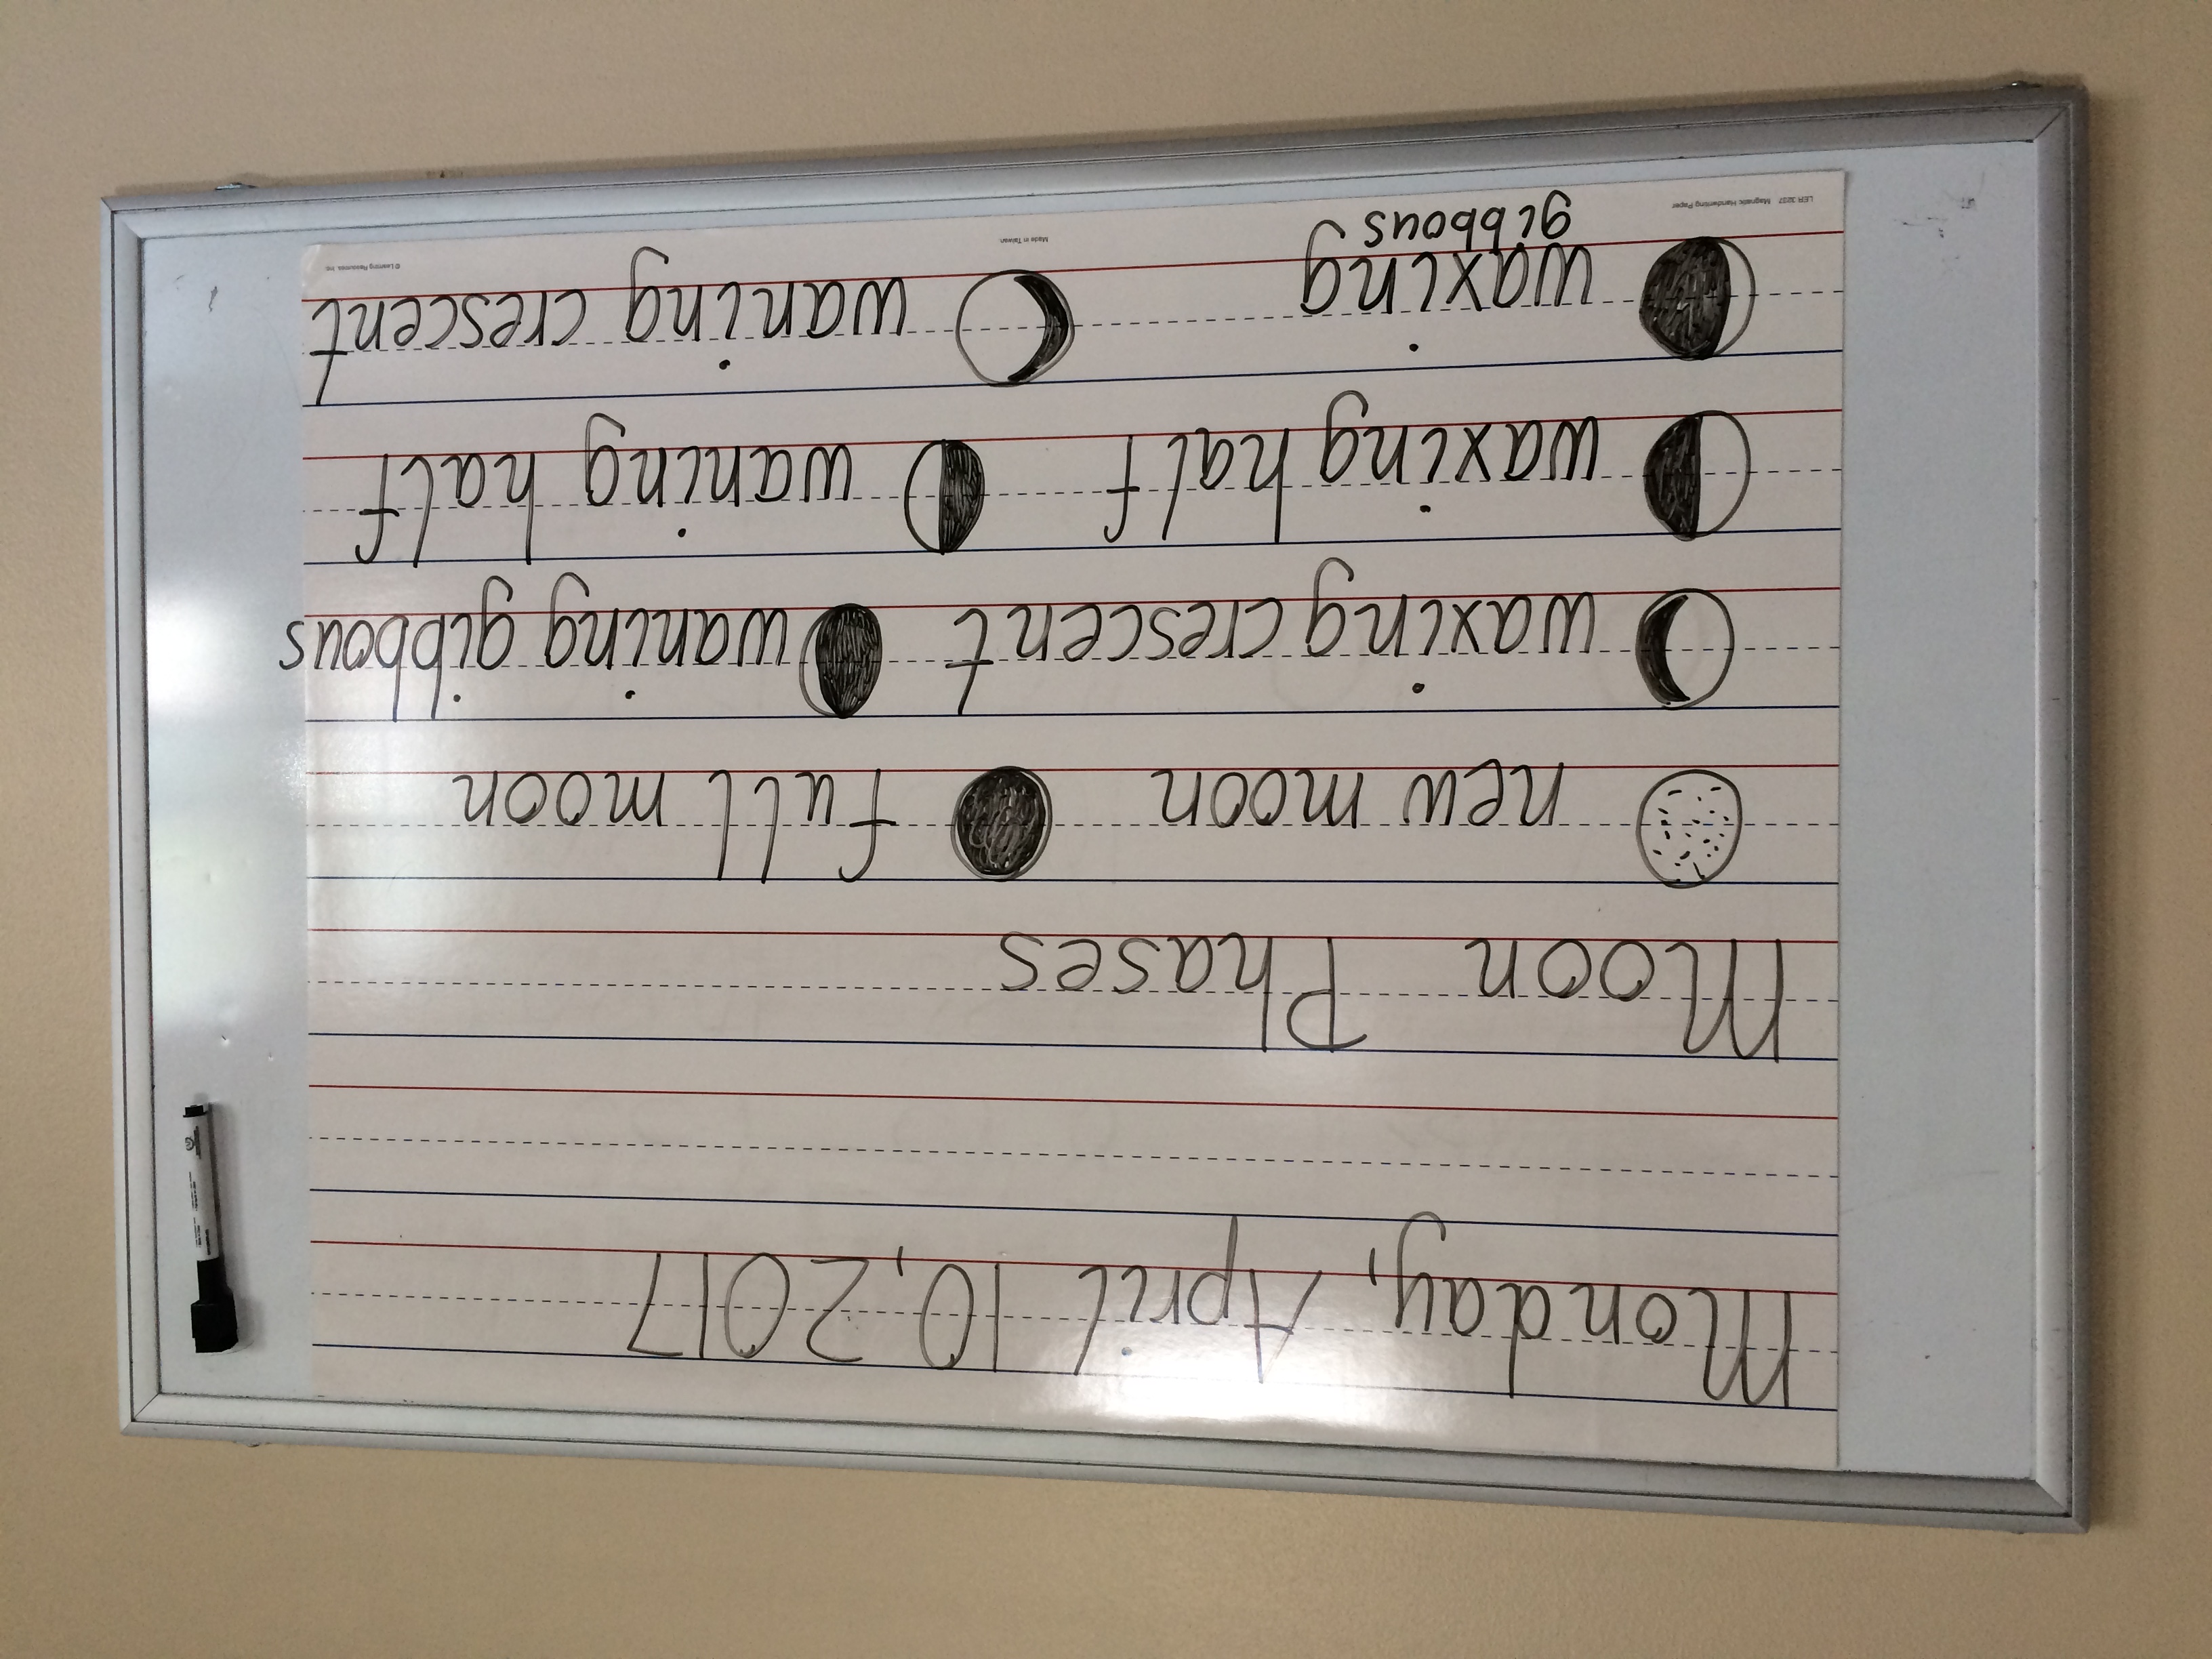 Monday, April 10, 2017
Moon Phases
new moon full moon
waxing crescent waning gibbous
waxing half waning half
waxing waning crescent
gibbous
LER 3237 Magnetic Handwriting Paper Made in Taiwan © Learning Resources, Inc.